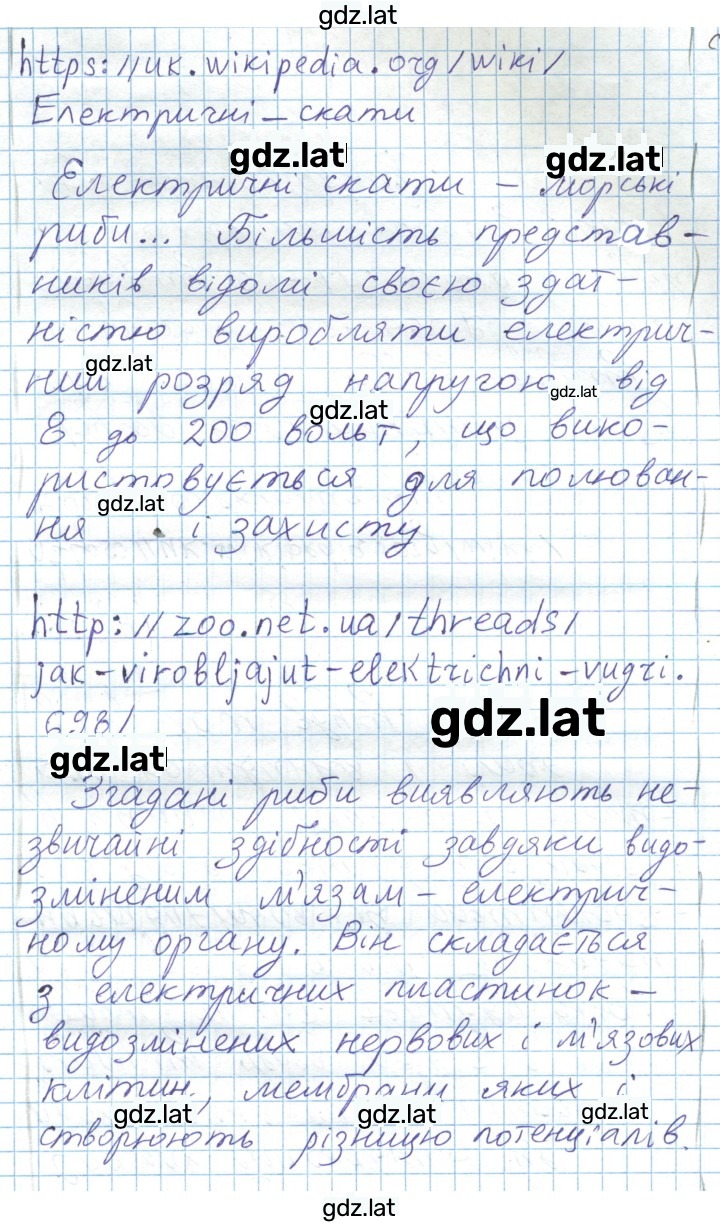 gdz.lat
https://uk.wikipedia.org/wiki/
Електричні_скати
gdz.lat
gdz.lat
Електричні скати - морські
риби... Більшість представ-
ників відомі своєю здат-
ністю виробляти електрич-
gdz.lat
ний розряд напругою від
gdz.lat
gdz.lat
8 до 200 вольт, що вико-
ристовується для полюван-
gdz.lat
ня і захисту
http://zoo.net.ua/threads/
jak-virobljajut-elektrichni-vugri.
698/
gdz.lat
gdz.lat
Згадані риби виявляють не-
звичайні здібності завдяки видо-
зміненим м'язам - електрич-
ному органу. Він складається
з електричних пластинок -
видозмінених нервових і м'язових
клітин, мембрани яких і
gdz.lat
gdz.lat
gdz.lat
створюють різницю потенціалів.
gdz.lat